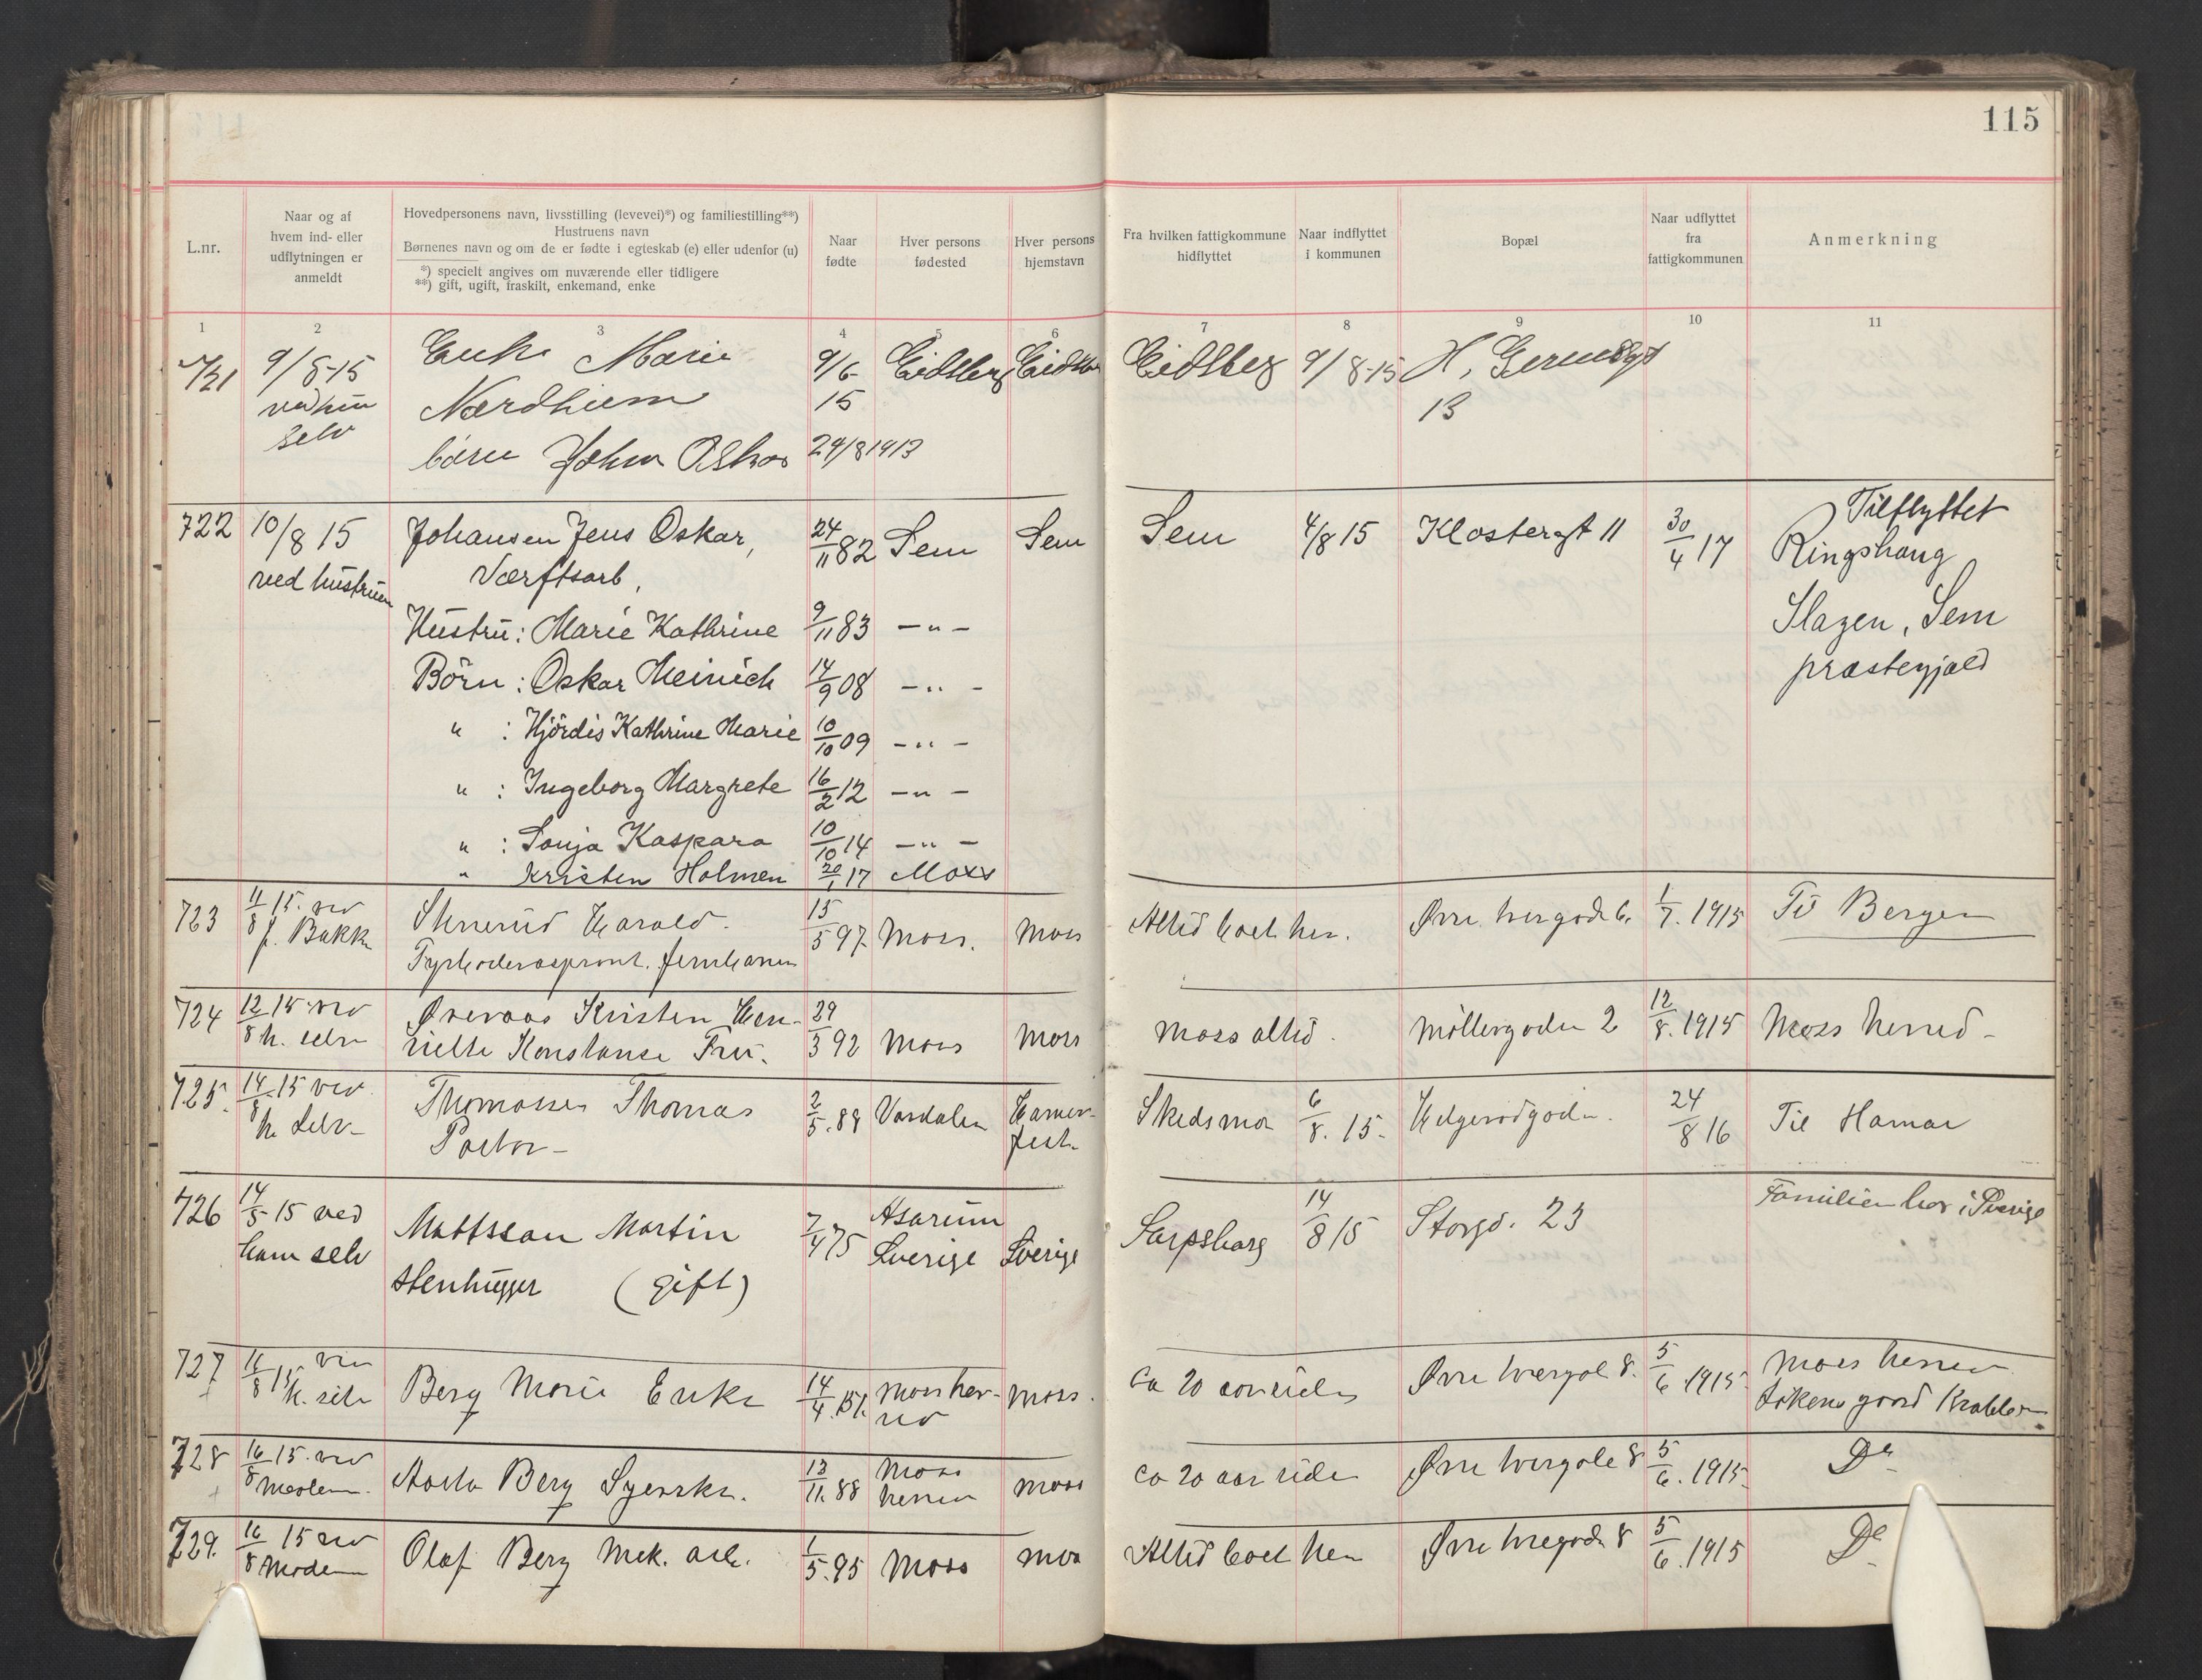 115
L.nr.
Naar og af
hvem ind- eller
udflytningen er
anmeldt
Hovedpersonens navn, livsstilling (levevei)*) og familiestilling**)
Hustruens navn
Børnenes navn og om de er fødte i egteskab (e) eller udenfor (u)
*) specielt angives om nuværende eller tidligere
**) gift, ugift, fraskilt, enkemand, enke
Naar
fødte
Hver persons
fødested
Hver persons
hjemstavn
Fra hvilken fattigkommune
hidflyttet
Naar indflyttet
i kommunen
Bopæl
Naar udflyttet
fra
fattigkommunen
Anmerkning
1 2 3 4 5 6 7 8 9 10 11
721 9/8-15 Enke Marie 9/6- Eidsberg Eidsberg Eidsberg 9/8-15
ved hun Nærdhiem 15 13
selv
børn John Oskar 29/8 1913
722 10/8 15 Johansen Jens Oskar, 24/11 82 Sem Sem Sem 4/8 15 Klostergt 11 30/4 17 Tilflyttet
ved hustruen Værftsarb, Ringshaug
Hustru: Marie Kathrine 9/11 83 — " — Slagen, Sem
Börn : Oskar Heinich 14/9 08 — " — præstegjæld
" : Hjördis Kathrine Marie 10/10 09 — " —
" : Ingeborg Margrete 16/2 12 — " —
" : Sonja Kaspara 10/10 14 — " —
" Kristen Holmen 20/1 17 Moss
723 11/8 15. ved Harald. 15/5 97 Moss. Moss Altid boet her. Øvre 6. 1/7. 1915 Til Bergen
f. Bakke
724 12/8 15 ved Kristen Hen- 29/3 92 Moss Moss Moss altid. Möllergaden 2 12/8. 1915 Moss herred -
h. selv riette Konstanse Fru.
725. 14/8. 15 ved Thomassen Thomas 2/5. 89 Værdalen Hamer- Skedsmo 6/8. 15. 24/8 16 Til Hamar
h. selv Pastor - fest
726 14/8 15 ved Mattsson Martin 7/4 75 Asarum Sverige Sarpsborg 14/8 15 Storgd. 23 Familien bor i Sverige
ham selv Stenhugger (gift) Sverige
727 16/8 15 ved Berg Marie Enke 14/4. 51. Moss her- Moss. ca 20 aar siden Øvre 8. 5/6. 1915 Moss herred
h. selv red
728 16/8 15. ved Berg Syerske. 13/11. 88 Moss Moss ca 20 aar siden Øvre 8 5/6. 1915 Do
Moderen. herred
729. 16/8 15 ved Olaf Berg Mek. arb. 1/5. 95 Moss Moss Altid boet her Øvre 8 5/6. 1915 Do
Moderen